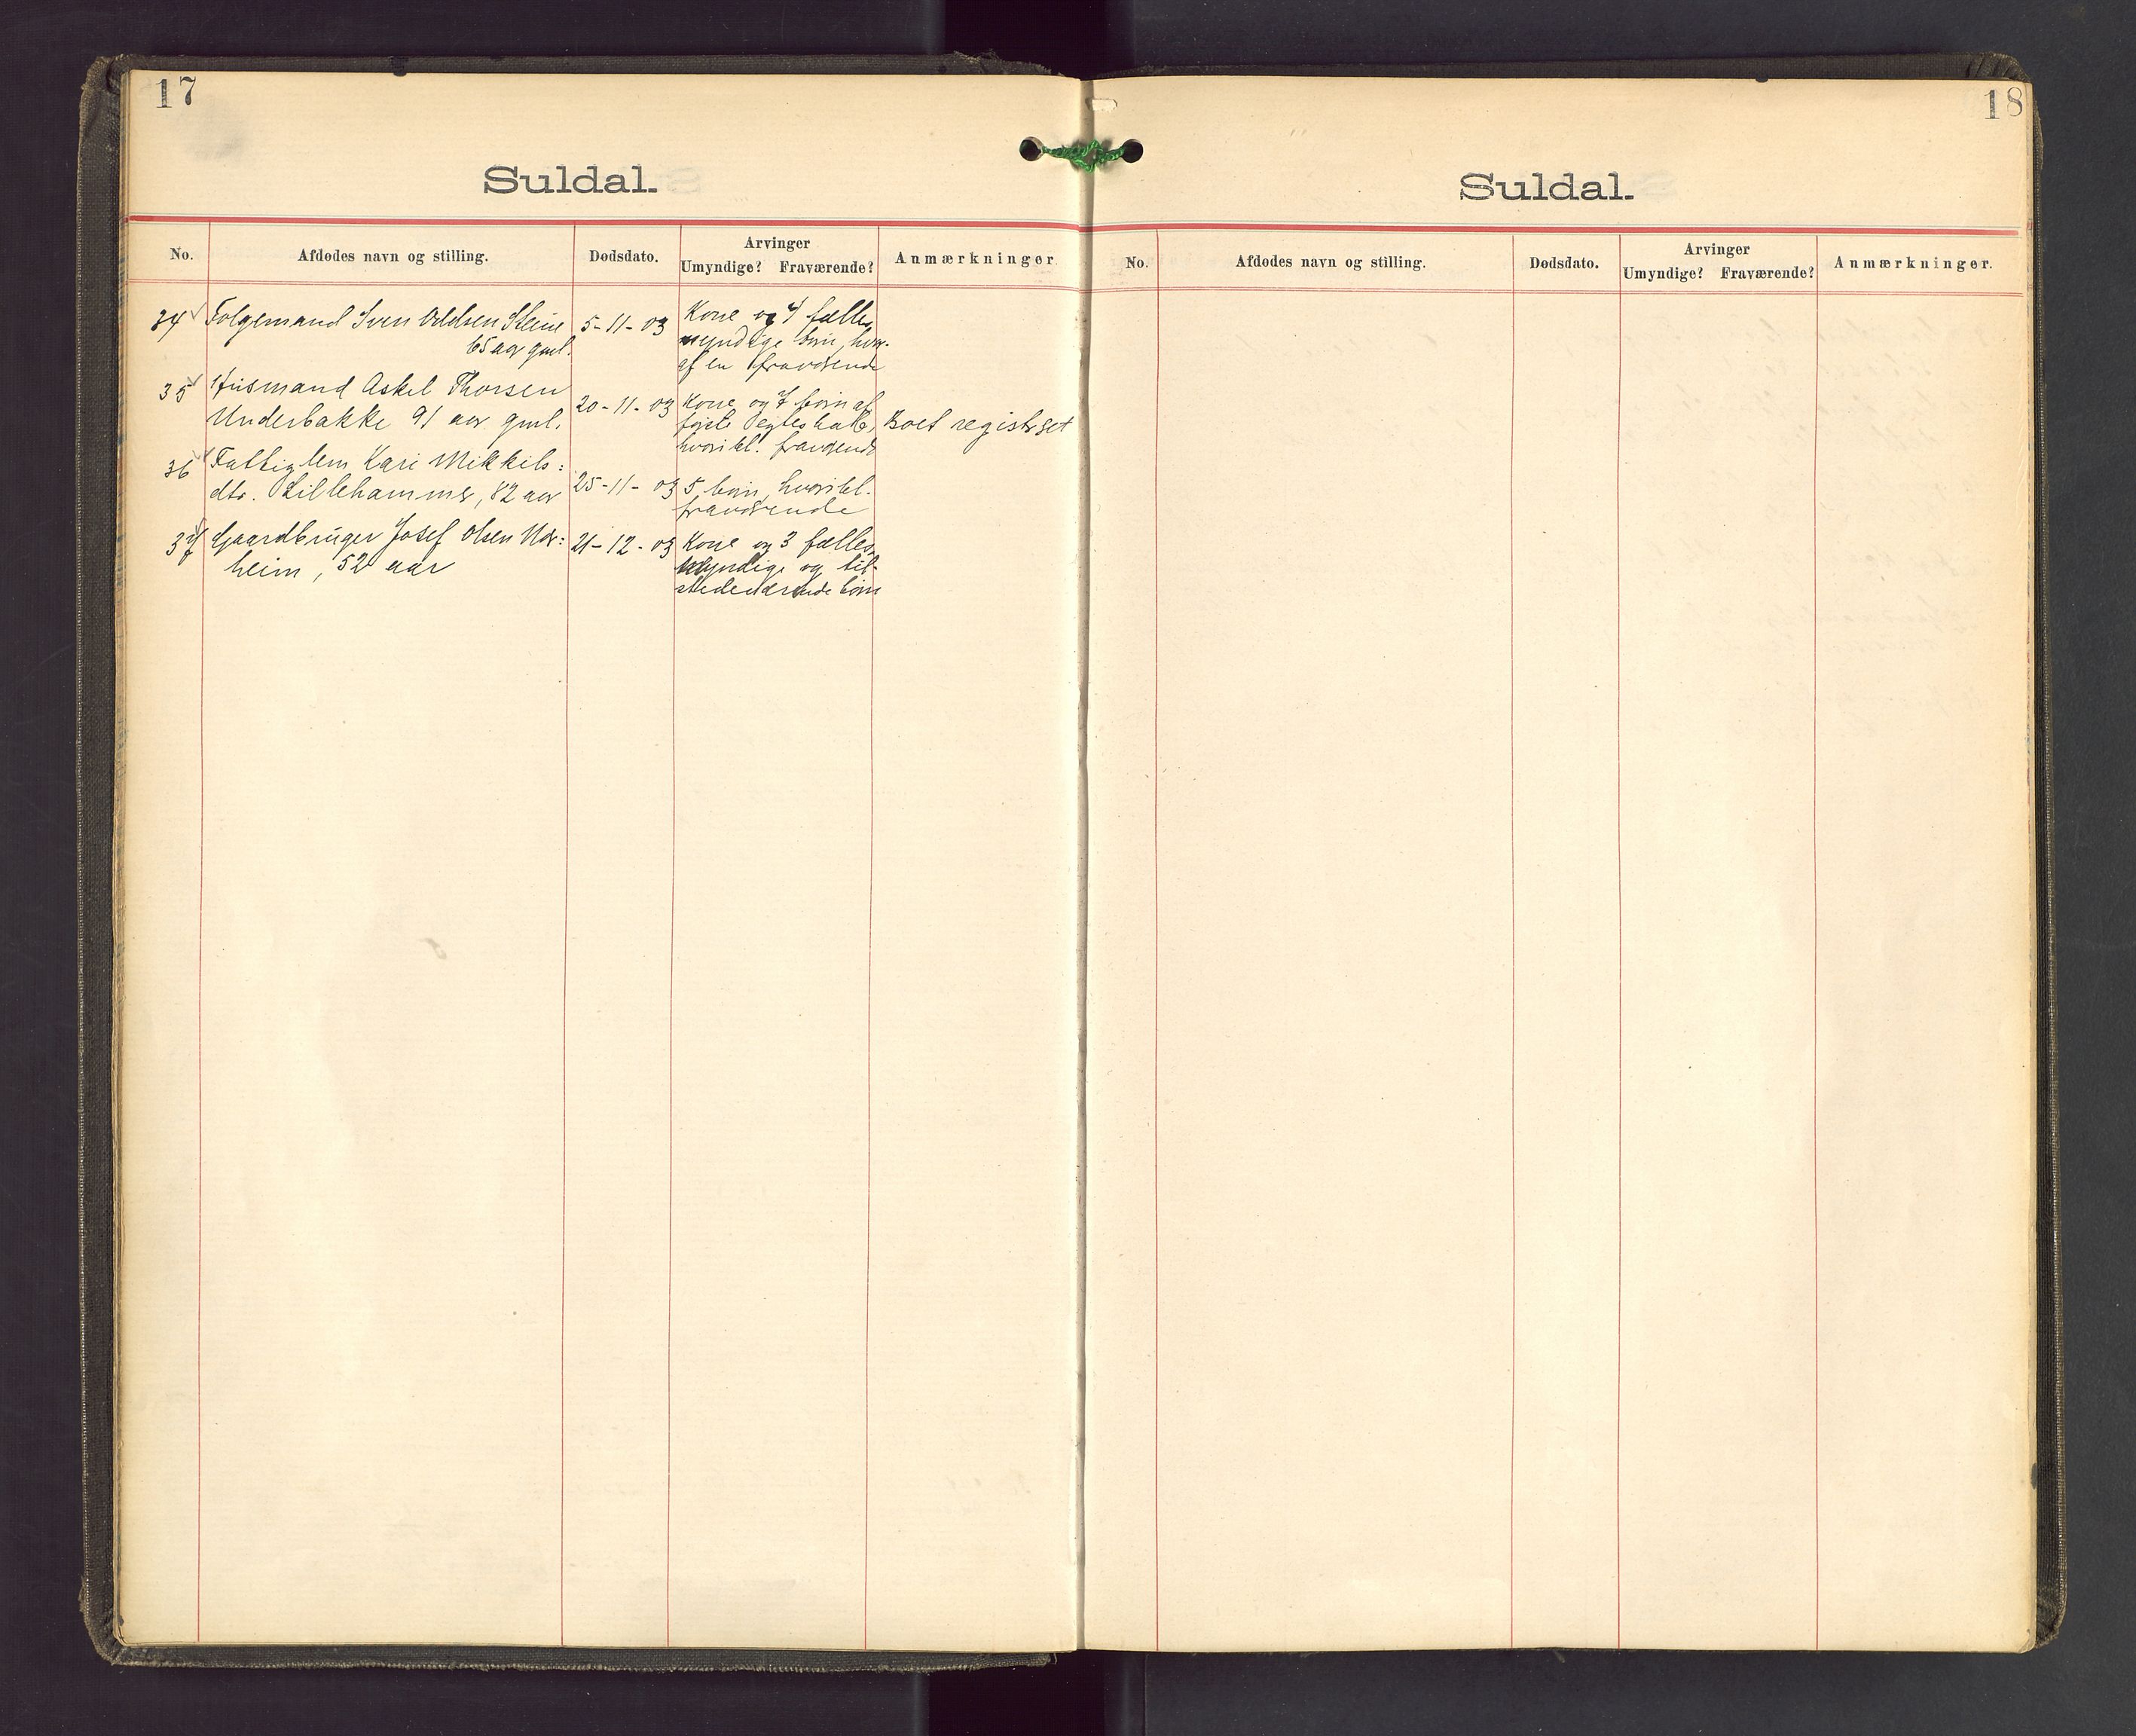 17
Suldal.
No.
Afdødes navn og stilling.
Dødsdato.
Arvinger
Umyndige? Fraværende?
Anmærkninger
34 Folgemand Sven Oddsen Steine 5-11-03 Kone og 4 fælles
65 aar gml. myndige børn, hvor-
af en fraværende
35 Husmand Askel Thorsen 20-11-03 Kone og 7 børn af
Underbakke 91 aar gml. første egteskab, Boet registrert
hvoribl. fraværende
36 Fattiglem Kari Mikkils:
dtr. Lillehammer, 82 aar 25-11-03 5 børn, hvoribl.
fraværende
37 Gaardbruger Josef Olsen 21-12-03 Kone og 3 fælles
heim, 52 aar myndige og til-
stedeværende børn
18
Suldal.
No.
Afdødes navn og stilling.
Dødsdato.
Arvinger
Umyndige? Fraværende?
Anmærkninger.